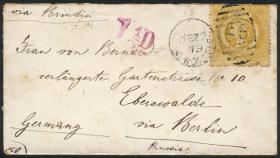 via Brindisi
7½D
Frau von Bernu
verlängerte Gartenstrasse No 10
Eberswalde
Germany via Berlin
Prussia